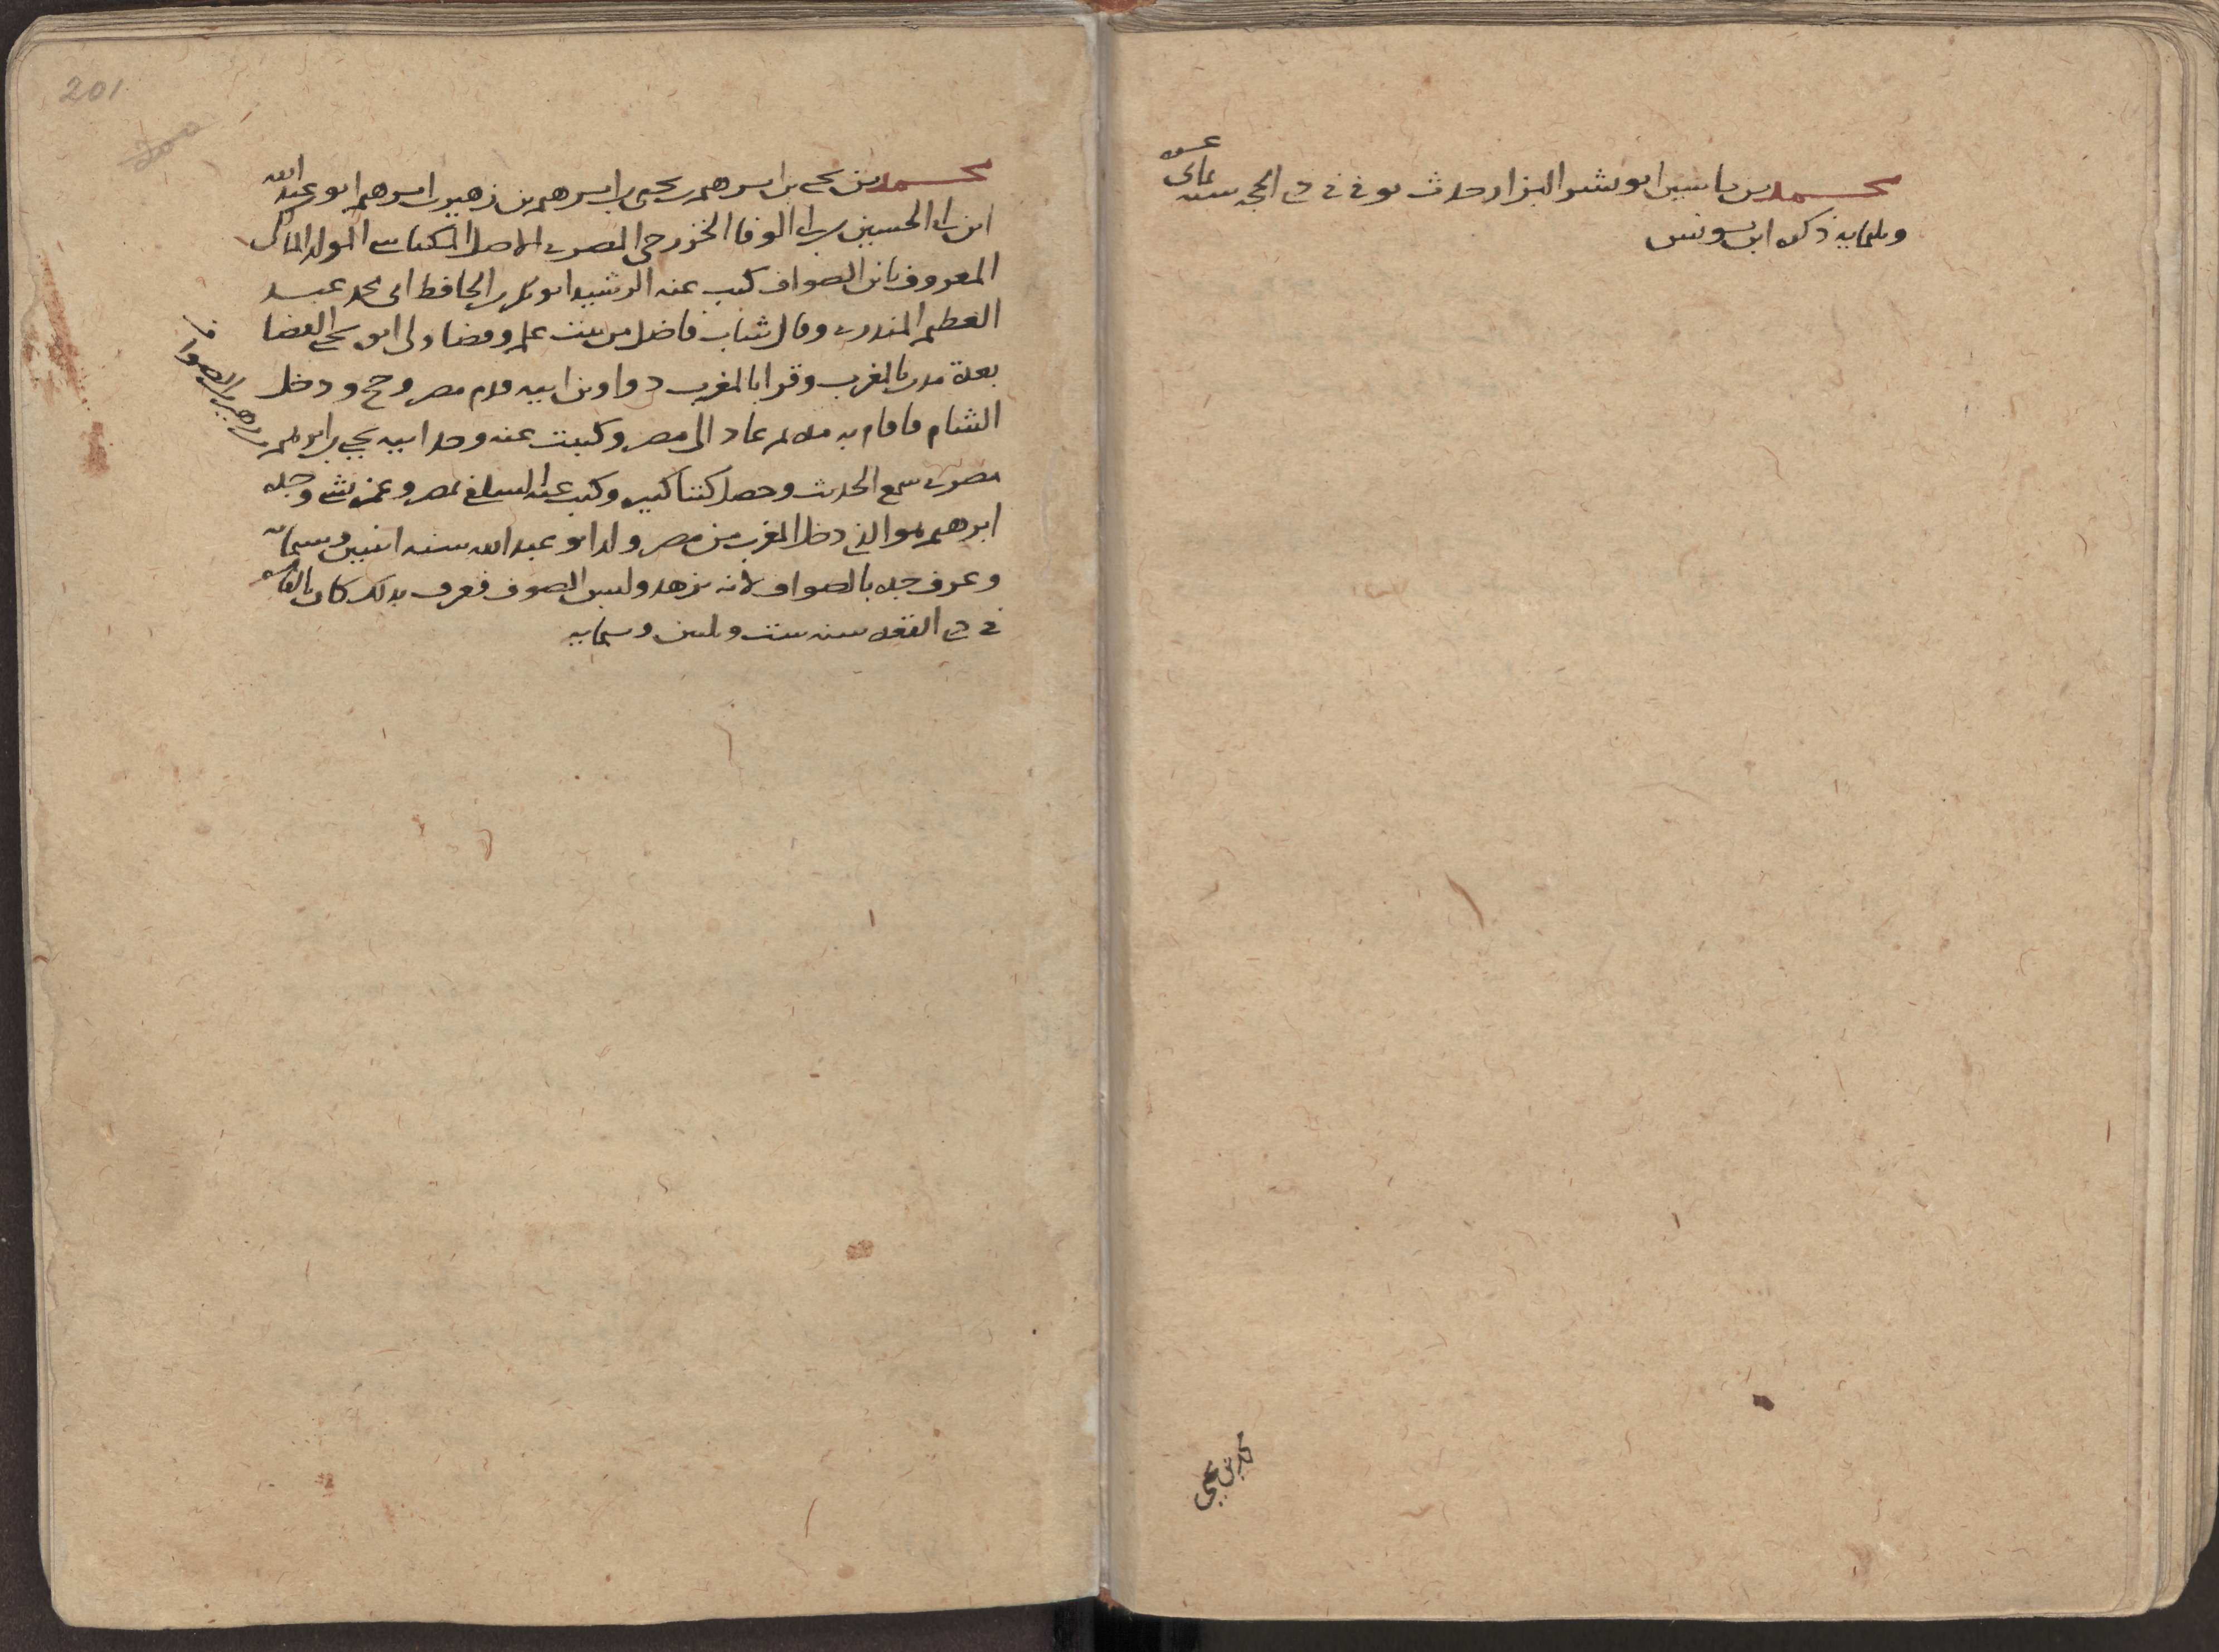 محمد بن ياسين ابو بشر البزار حدث توفي في ذي الحجه سنه ثماني عشره
وثلثمايه ذكره ابن يونس
محمد بن يحيى
201
محمد بن يحيى بن ابرهيم بن يحيى بن ابرهيم بن زهير بن ابرهيم ابو عبد الله
ابن ابي الحسين بن ابي الوفا الخزرجي المصري الاصل المكناسي المولد المالكي
المعروف بابن الصواف كتب عنه الرشيد ابو بكر بن الحافظ ابي محمد عبد
العظيم المنذري وقال شاب فاضل من بيت علم وقضا ولي ابو يحيى القضا
بعدة مدن بالمغرب وقرا بالمغرب دواوين ابيه قدم مصر وحج ودخل
الشام فاقام به مده ثم عاد الى مصر وكتبت عنه وجد ابيه يحيى بن ابرهيم بن زهير بن الصواف
مصري سمع الحديث وحصل كتبا كثيره وكتب عنه السلفي بمصر وعمر وجده
ابرهيم هو الذي دخل المغرب من مصر ولد ابو عبد الله سنه اثنين وستمائه
وعرف جده بالصواف لانه تزهد ولبس الصوف فعرف بذلك كان بالقاهره
في ذي القعده سنه ست وثلثين وستمايه